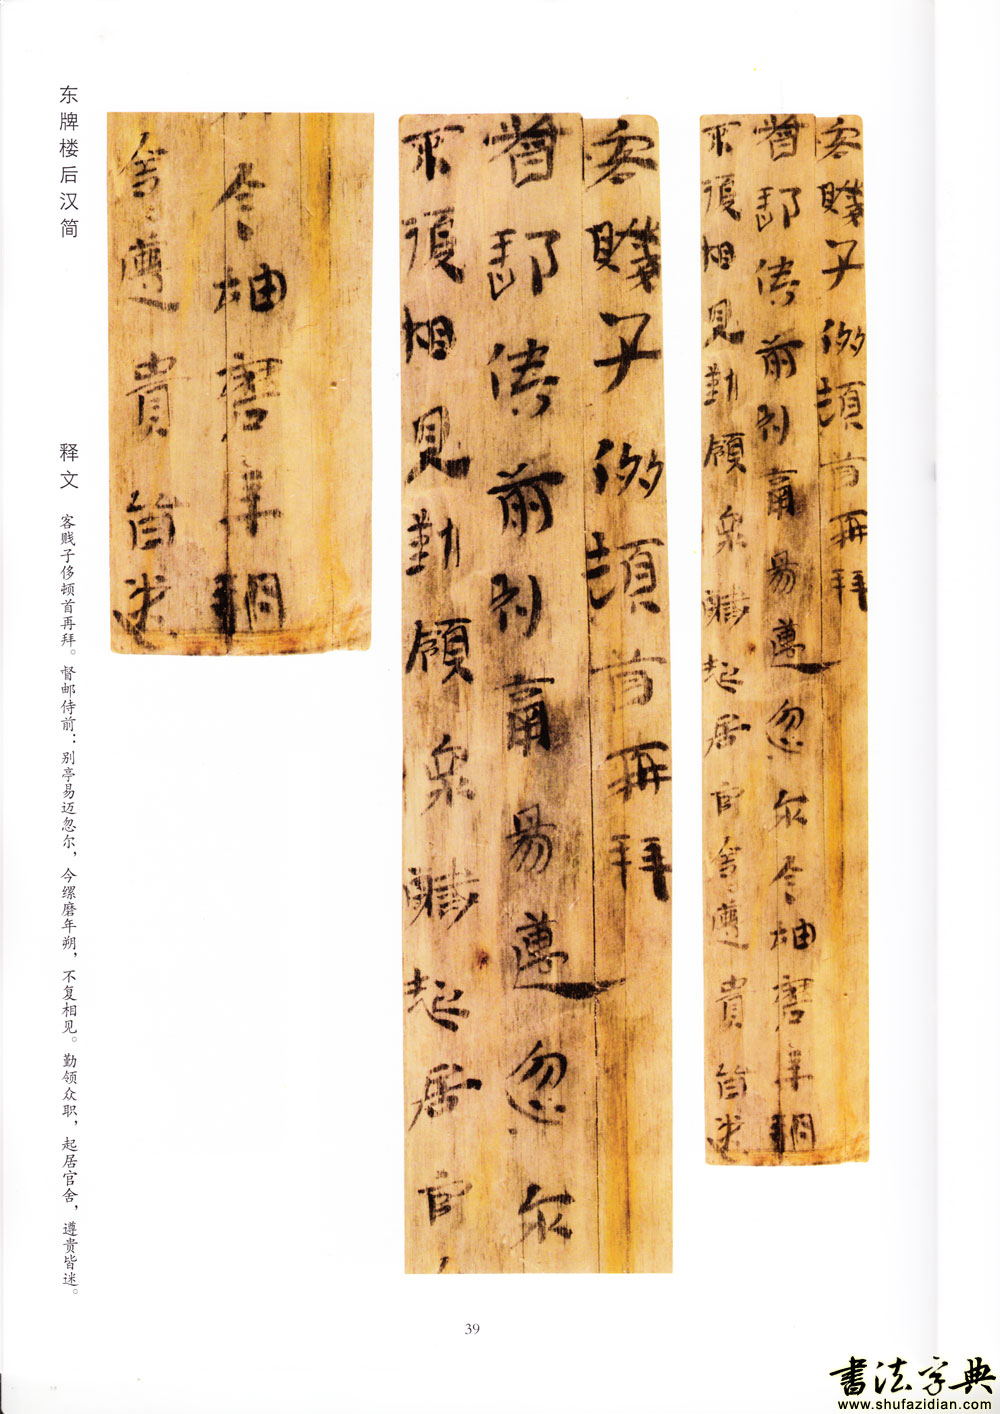 客賤子侈頓首再拜
督郵侍前別亭易邁忽尔今
磨年朔
不復相見勤領眾職起居官舍
遵貴皆迷
客賤子侈頓首再拜
督郵侍前別亭易邁忽尔
不復相見勤領眾職起居官
今
磨年朔
舍遵貴皆迷
东牌楼后汉简
释文 客贱子侈顿首再拜。督邮侍前：别亭易迈忽尔，今缧磨年朔，不复相见。勤领众职，起居官舍，遵贵皆迷。
39
書法字典
www.shufazidian.com